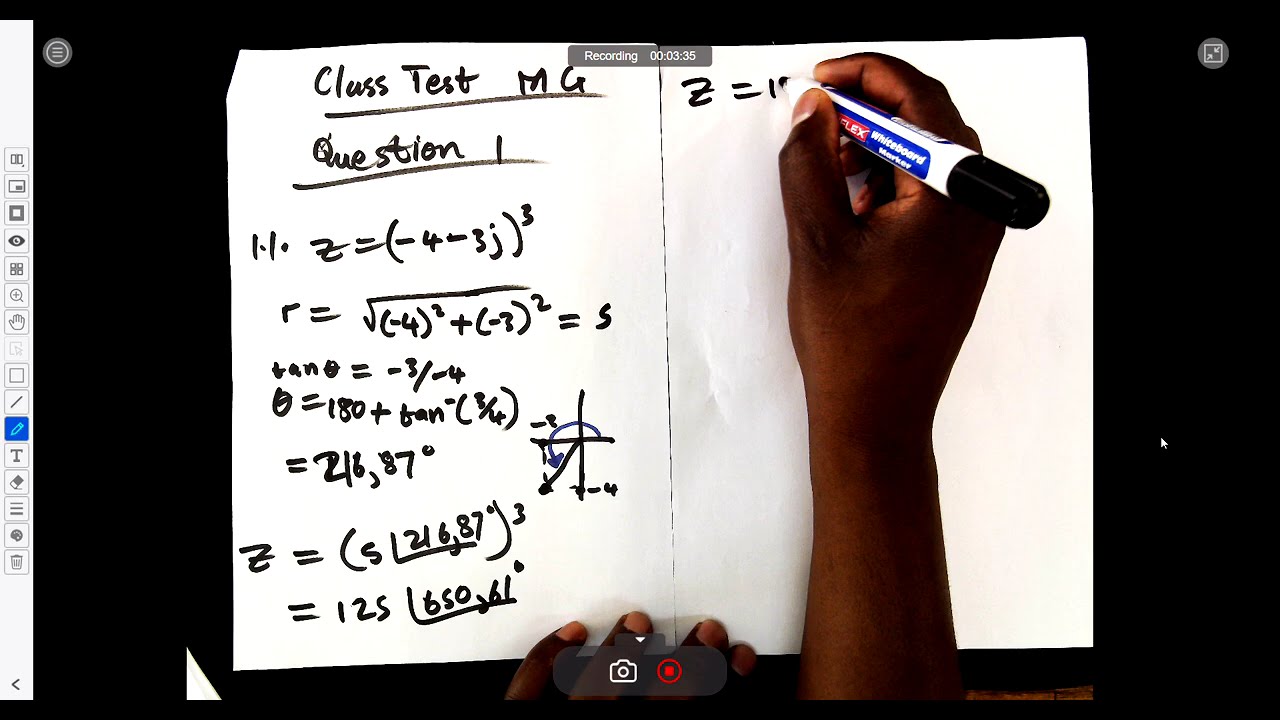 Recording 00:03:35
Class Test MG
Question 1
1.1. z = (-4-3j)³
r = √(-4)²+(-3)² = 5
tanθ = -3/-4
θ = 180 + tan⁻(3/4)
= 216,87°
-3
-4
z = (5∠216,87°)³
= 125∠650,61°
z = 1
FLEX Whiteboard
Marker